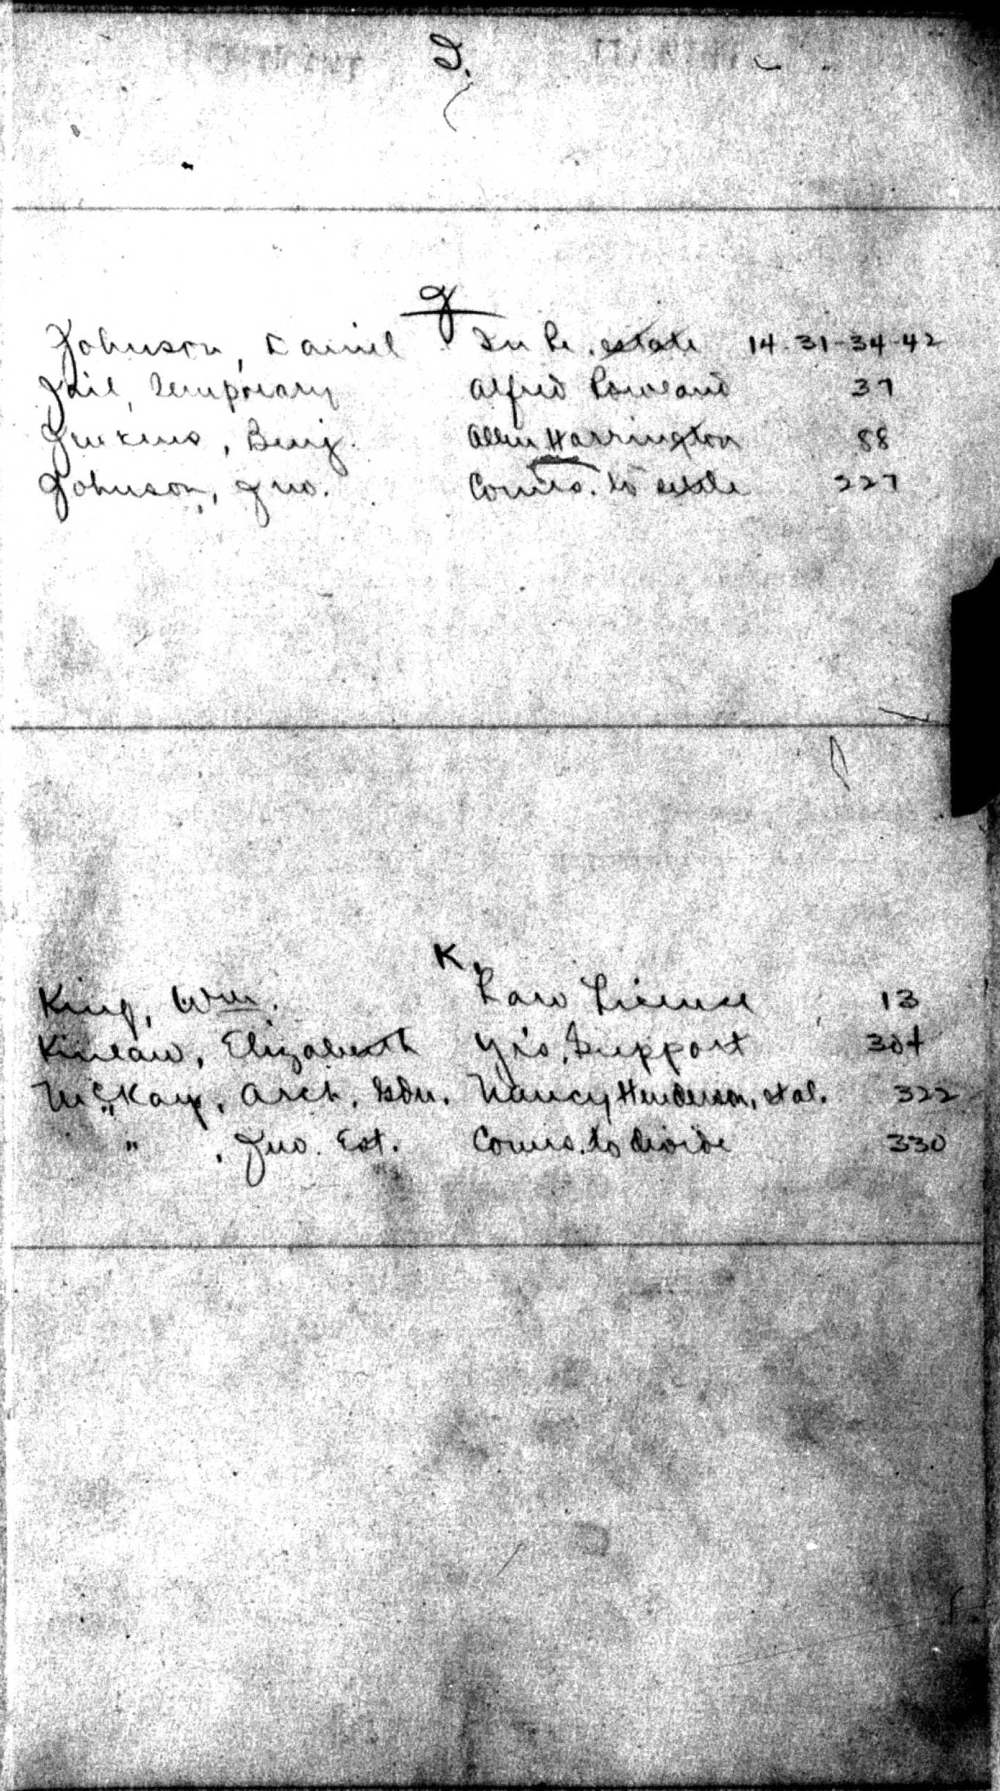 I.
J
Johnson, Daniel In Re. estate 14-31-34-42
Jail, Temporary Alfred Rowland 37
Jenkins, Benj. Allen Harrington 88
Johnson, Jno. Comrs. to settle 227
K.
King, Wm. Law License 13
Kinlaw, Elizabeth Yr's. Support 304
McKay, Arch. Gdn. Nancy Henderson, et al. 322
" , Jno. Est. Comrs. to divide 330